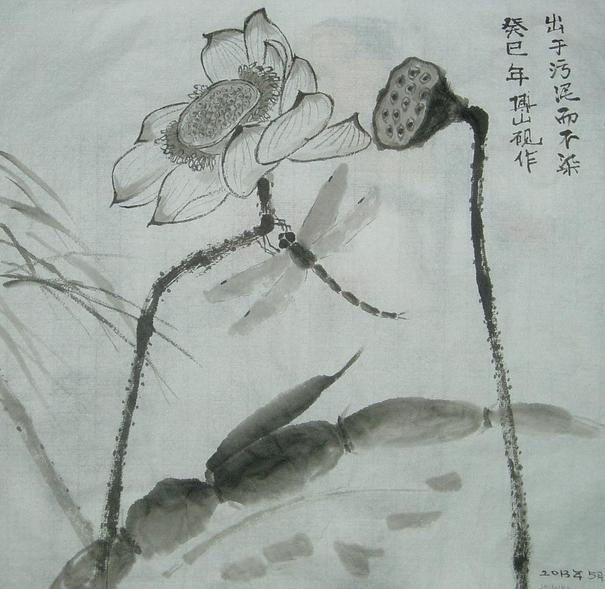 出于污泥而不染
癸巳年 傅山砚作
2013年5月